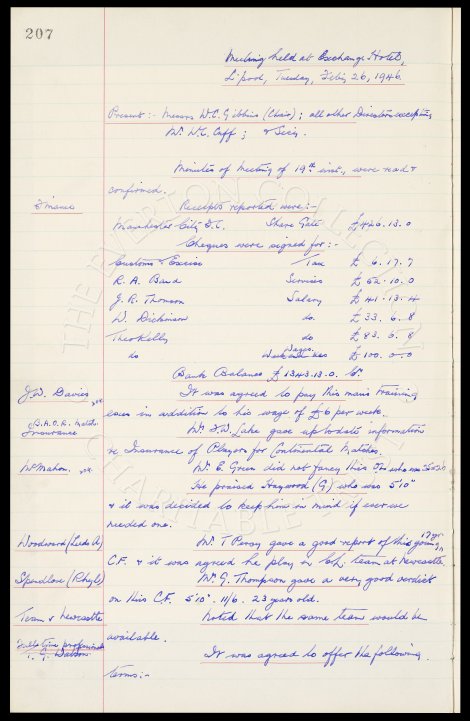 207
Meeting held at Exchange Hotel,
L'pool, Tuesday, Feb'y 26, 1946.
Present :- Messrs W.C. Gibbins (Chair) ; all other Directors excepting
Mr W.C. Cuff ; & Secy.
Minutes of Meeting of 19th inst., were read &
confirmed.
Finance Receipts reported were :-
Manchester City F.C. Share Gate £426. 13. 0
Cheques were signed for :-
Customs & Excise Tax £ 6. 17. 7
R. A. Band Services £ 52 . 10. 0
J. R. Thomson Salary £ 41 . 13 . 4
W. Dickinson do. £ 33. 6. 8
Theo Kelly do £ 83. 6. 8
do Wages £ 100. 0. 0
Bank Balance £ 1343. 13. 0. Cr.
J.W. Davies It was agreed to pay this man's training
exes in addition to his wage of £6 per week.
B.A.O.R. match Insurance Mr. Lake gave up to date information
re Insurance of Players for Continental Matches.
McMahon Mr. E. Green did not fancy this
He praised Haywood (G) who was 5'10"
& it was decided to keep him in mind if ever we
needed one.
Woodward (Leeds A) Mr. T Percy gave a good report of this young 17 yr.
C.F. & it was agreed he play in team at Newcastle.
Spendlove (Rhyl) Mr. G. Thompson gave a very good verdict
on this C.F. 5'10". 11/6. 23 years old.
Team v Newcastle Noted that the same team would be
available.
Full time professionals It was agreed to offer the following
terms :-
THE EVERTON COLLECTION
CHARITABLE